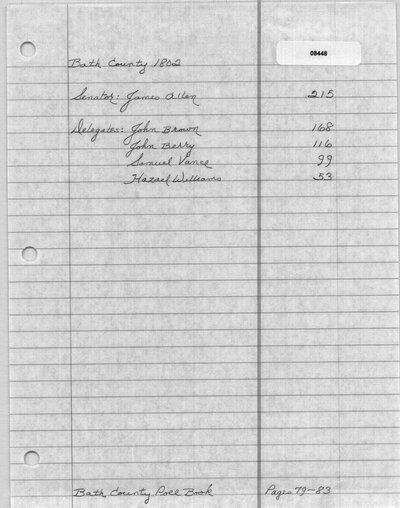 08448
Bath County 1802
Senator: James Allen 215
Delegates: John Brown 168
John Berry 116
Samuel Vance 99
Hazael Williams 53
Bath County Poll Book Pages 79-83